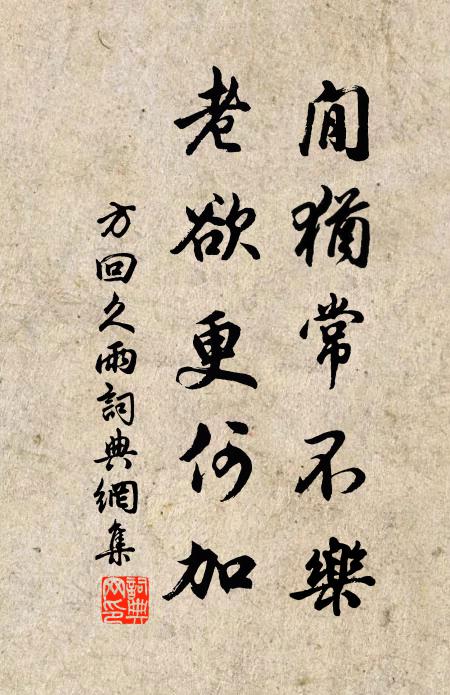 閒猶常不樂
老欲更何加
方回久雨詞典網集
詞典網印